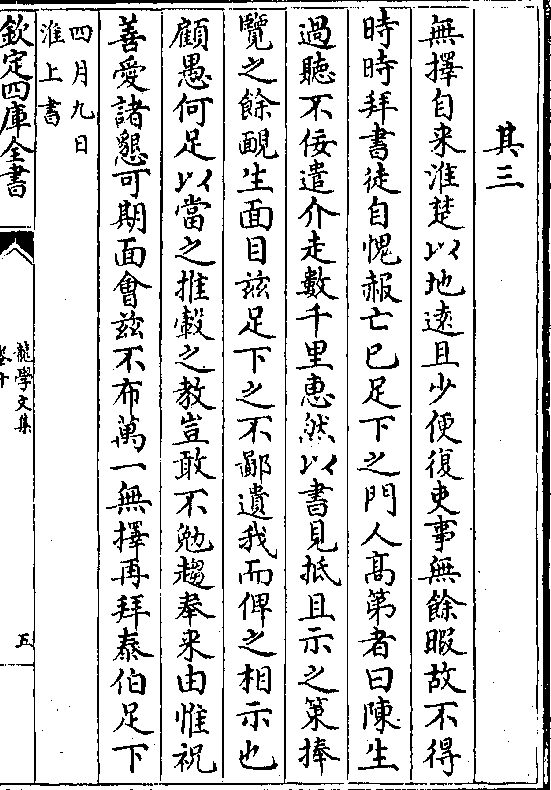 其三
無擇自来淮楚以地遠且少便復吏事無餘暇故不得
時時拜書徒自愧赧亡已足下之門人高第者曰陳生
過聽不佞遣介走數千里惠然以書見抵且示之策捧
覽之餘靦生面目兹足下之不鄙遺我而俾之相示也
顧愚何足以當之推轂之教豈敢不勉趨奉来由惟祝
善愛諸懇可期面會兹不布萬一無擇再拜泰伯足下
四月九日
淮上書
欽定四庫全書
龍學文集
卷十
五